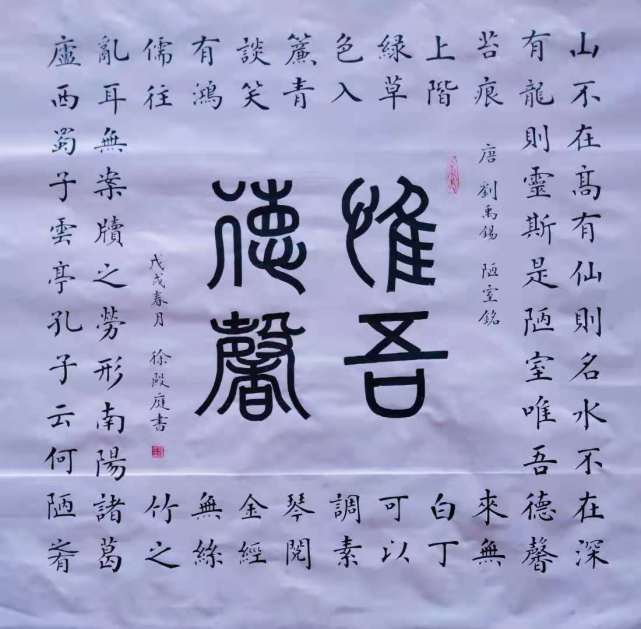 山不在髙有仙則名水不在深
有龍則靈斯是陋室唯吾德馨
苔痕
上階
緑草
色入
簾青
談笑
有鴻
儒往
來無
白丁
可以
調素
琴閱
金經
無絲
竹之
亂耳無案牘之勞形南陽諸葛
廬西蜀子雲亭孔子云何陋
唐 劉禹錫 陋室銘
惟吾
德馨
戊戌春月 徐殿庭書